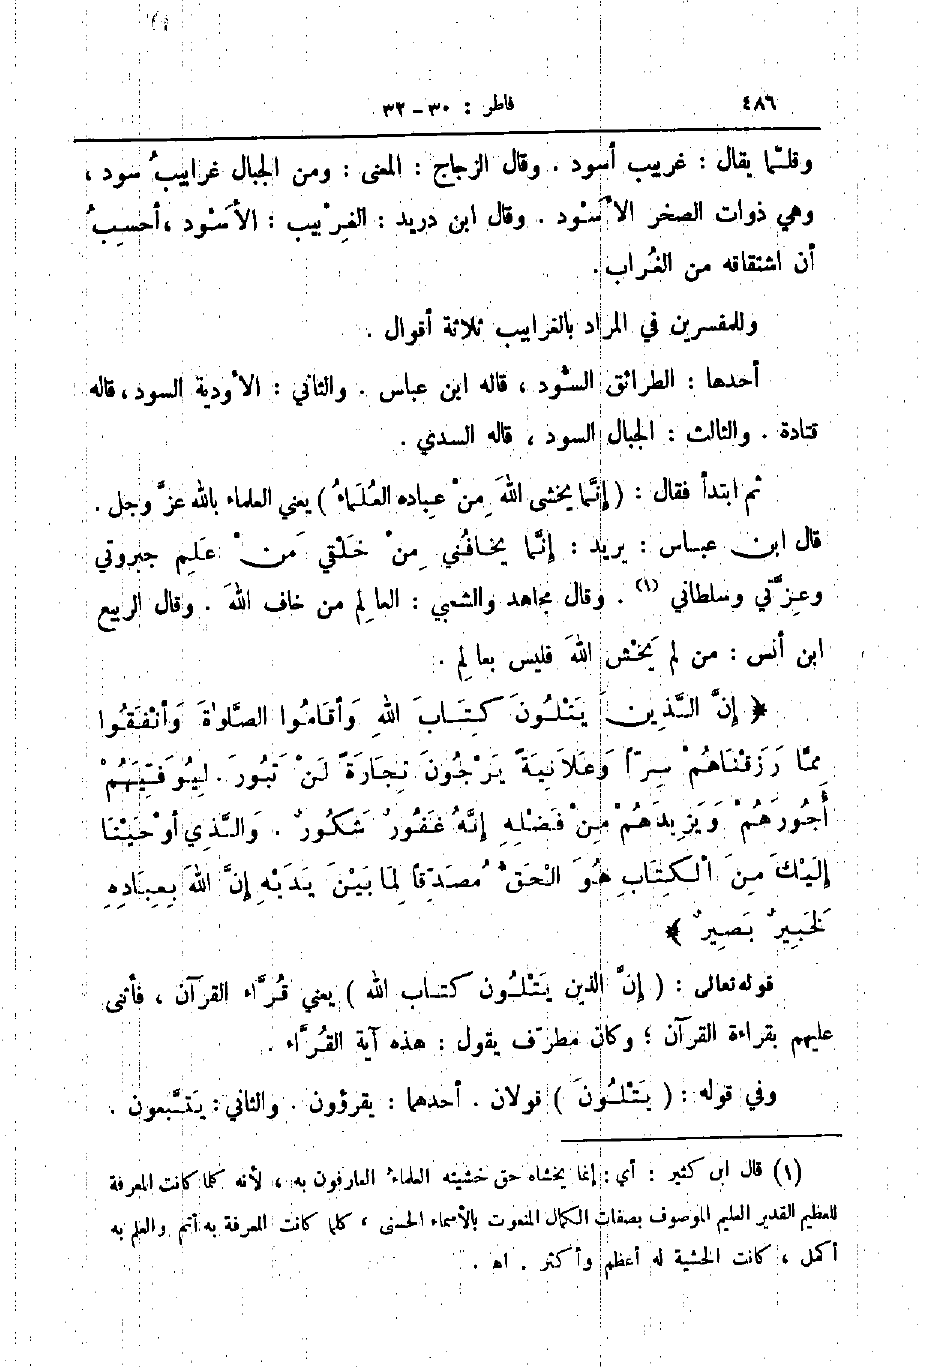 ٤٨٦ فاطر : ٣٠ – ٣٢
وقلـَّما يقال : غربيب أسود . وقال الزجاج : المعنى : ومن الجبال غرابيبُ سود ،
وهي ذوات الصخر الأسْود . وقال ابن دريد : الغِرْبيب : الأسْود ، أحسِبُ
أن اشتقاقه من الغُراب .
وللمفسرين في المراد بالغرابيب ثلاثة أقوال .
أحدها : الطرائق السُّود ، قاله ابن عباس . والثاني : الأودية السود ، قاله
قتادة . والثالث : الجبال السود ، قاله السدي .
ثم ابتدأ فقال : ( إنَّما يخشى اللهَ مِنْ عِباده العُلَماءُ ) يعني العلماء بالله عزَّ وجل .
قال ابن عباس : يريد : إنَّما يخافُني مِنْ خَلْقي مَنْ عَلِم جبروتي
وعِزَّتي وسلطاني (١) . وقال مجاهد والشعبي : العالِم من خاف اللهَ . وقال الربيع
ابن أنس : من لم يَخْش اللهَ فليس بعالِم .
﴿ إِنَّ الَّذِينَ يَتْلُونَ كِتَابَ اللهِ وَأَقَامُوا الصَّلوٰةَ وَأَنْفَقُوا
مِمَّا رَزَقْنَاهُمْ سِرّاً وَعَلَانِيَةً يَرْجُونَ تِجَارَةً لَنْ تَبُورَ . لِيُوَفِّيَهُمْ
أُجُورَهُمْ وَيَزِيدَهُمْ مِنْ فَضْلِهِ إِنَّهُ غَفُورٌ شَكُورٌ . وَالَّذِي أَوْحَيْنَا
إِلَيْكَ مِنَ الْكِتَابِ هُوَ الْحَقُّ مُصَدِّقاً لِمَا بَيْنَ يَدَيْهِ إِنَّ اللهَ بِعِبَادِهِ
لَخَبِيرٌ بَصِيرٌ ﴾
قوله تعالى : ( إنَّ الذين يَتْلُون كتاب الله ) يعني قُرَّاء القرآن ، فأثنى
عليهم بقراءة القرآن ؛ وكان مطرّف يقول : هذه آية القُرَّاء .
وفي قوله : ( يَتْلُونَ ) قولان . أحدهما : يقرؤون . والثاني : يَتَّبعون .
(١) قال ابن كثير : أي : إنما يخشاه حق خشيته العلماءُ العارفون به ، لأنه كلما كانت المعرفة
للعظيم القدير العليم الموصوف بصفات الكمال المنعوت بالأسماء الحسنى ، كلما كانت المعرفة به أتم والعلم به
أكمل ، كانت الخشية له أعظم وأكثر . اه .